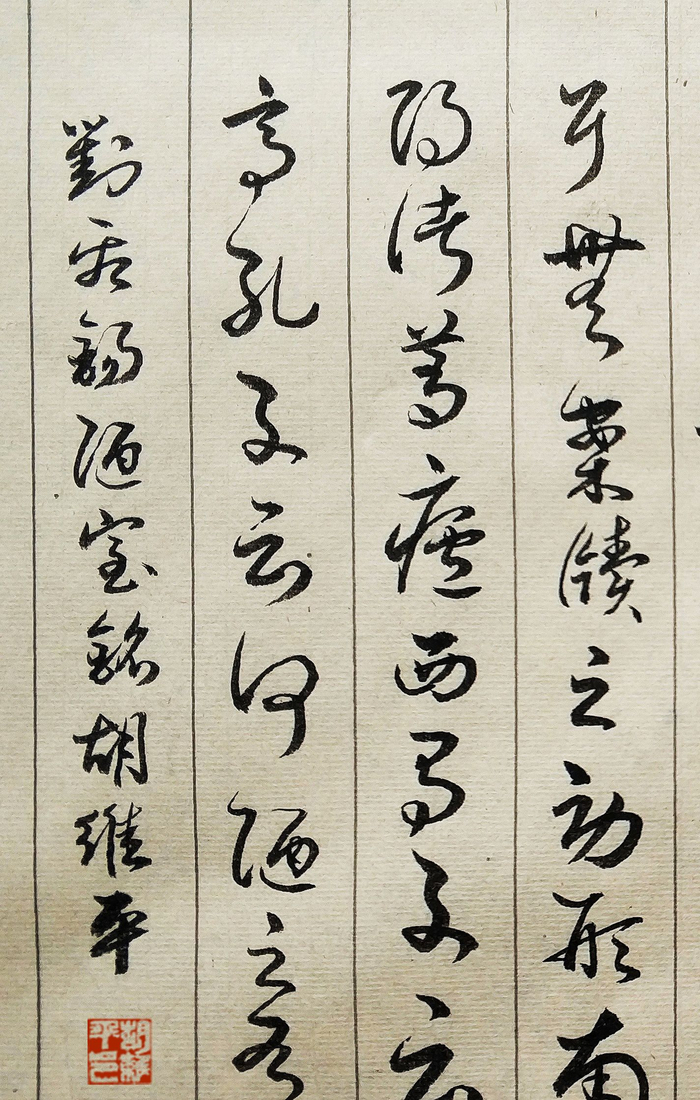 耳無案牘之勞形南
陽諸葛廬西蜀子云
亭孔子云何陋之有
劉禹錫陋室銘胡維平
胡維平印